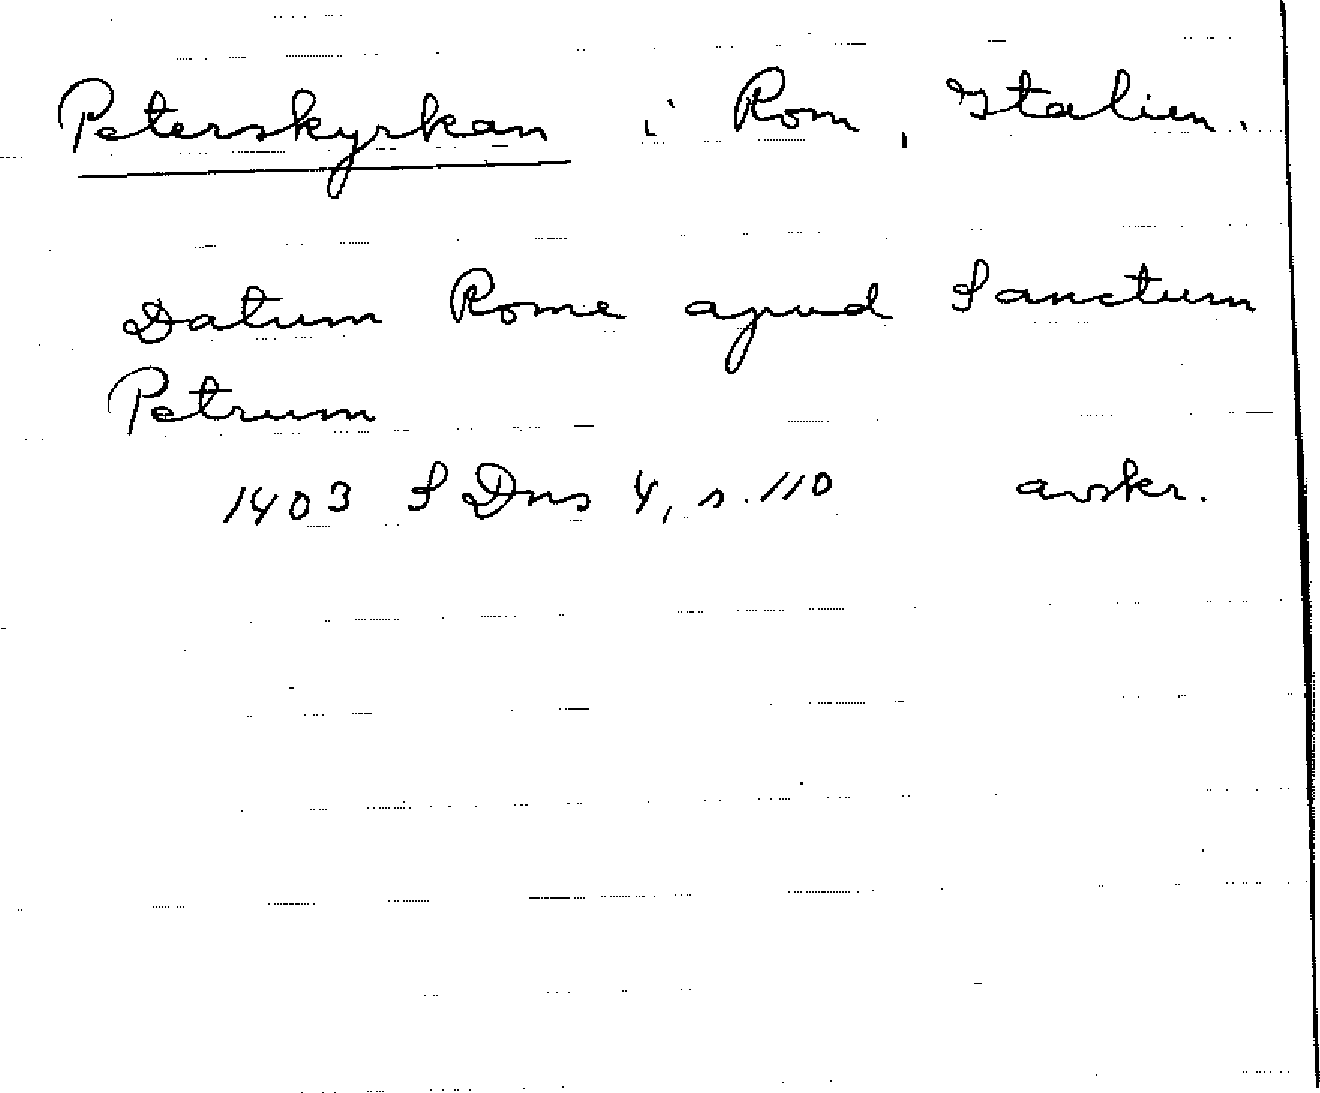 Peterskyrkan i Rom, Italien.
Datum Rome apud Sanctum
Petrum
1403 SDns 4, s. 110 avskr.